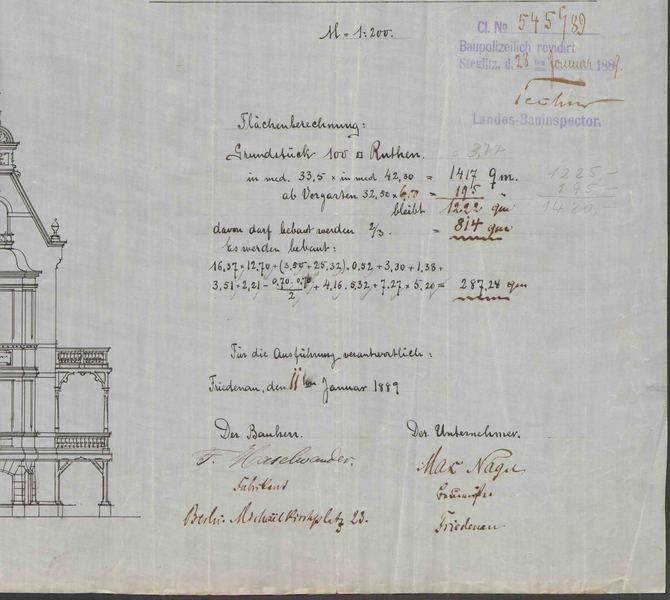 M = 1:200.
Cl. No 545/89
Baupolizeilich revidirt
Steglitz, d. 28 ten Januar 1889.
Landes-Bauinspector.
Flächenberechnung:
Grundstück 100 □ Ruthen.
in med. 33,5 × in med 42,30 = 1417 qm.
ab Vorgarten 32,50 × 6,00 = 195 "
bleibt 1222 qm
davon darf bebaut werden 2/3. = 814 qm
Es werden bebaut:
16,37 × 12,70 + (3,50 + 25,32) . 0,52 + 3,30 + 1,38 +
3,51 + 2,21 - 0,70 . 0,70 / 2 + 4,16 . 5,32 + 7,27 × 5,20 = 287,24 qm
1225,-
195,-
1420
Für die Ausführung verantwortlich:
Friedenau, den 11ten Januar 1889
Der Bauherr.
Der Unternehmer.
F. Haselwander.
Max Nagel
Fabrikant
Berlin. Michaelkirchplatz 23.
Friedenau